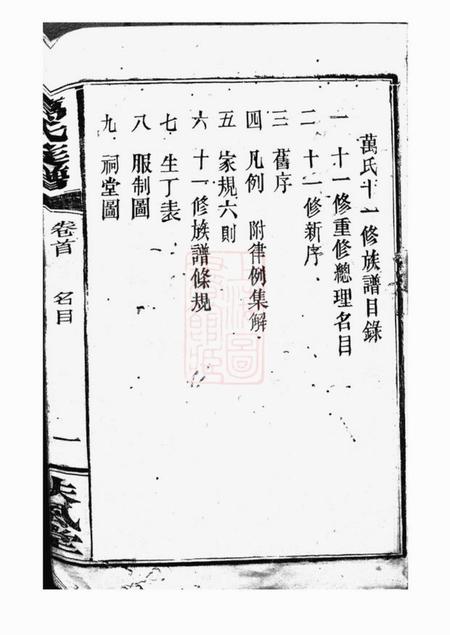 萬氏十一修族譜目錄
一 十一修重修總理名目
二 十一修新序
三 舊序
四 凡例 附律例集解
五 家規六則
六 十一修族譜條規
七 生丁表
八 服制圖
九 祠堂圖
萬氏族譜
卷首 名目
一
扶風堂